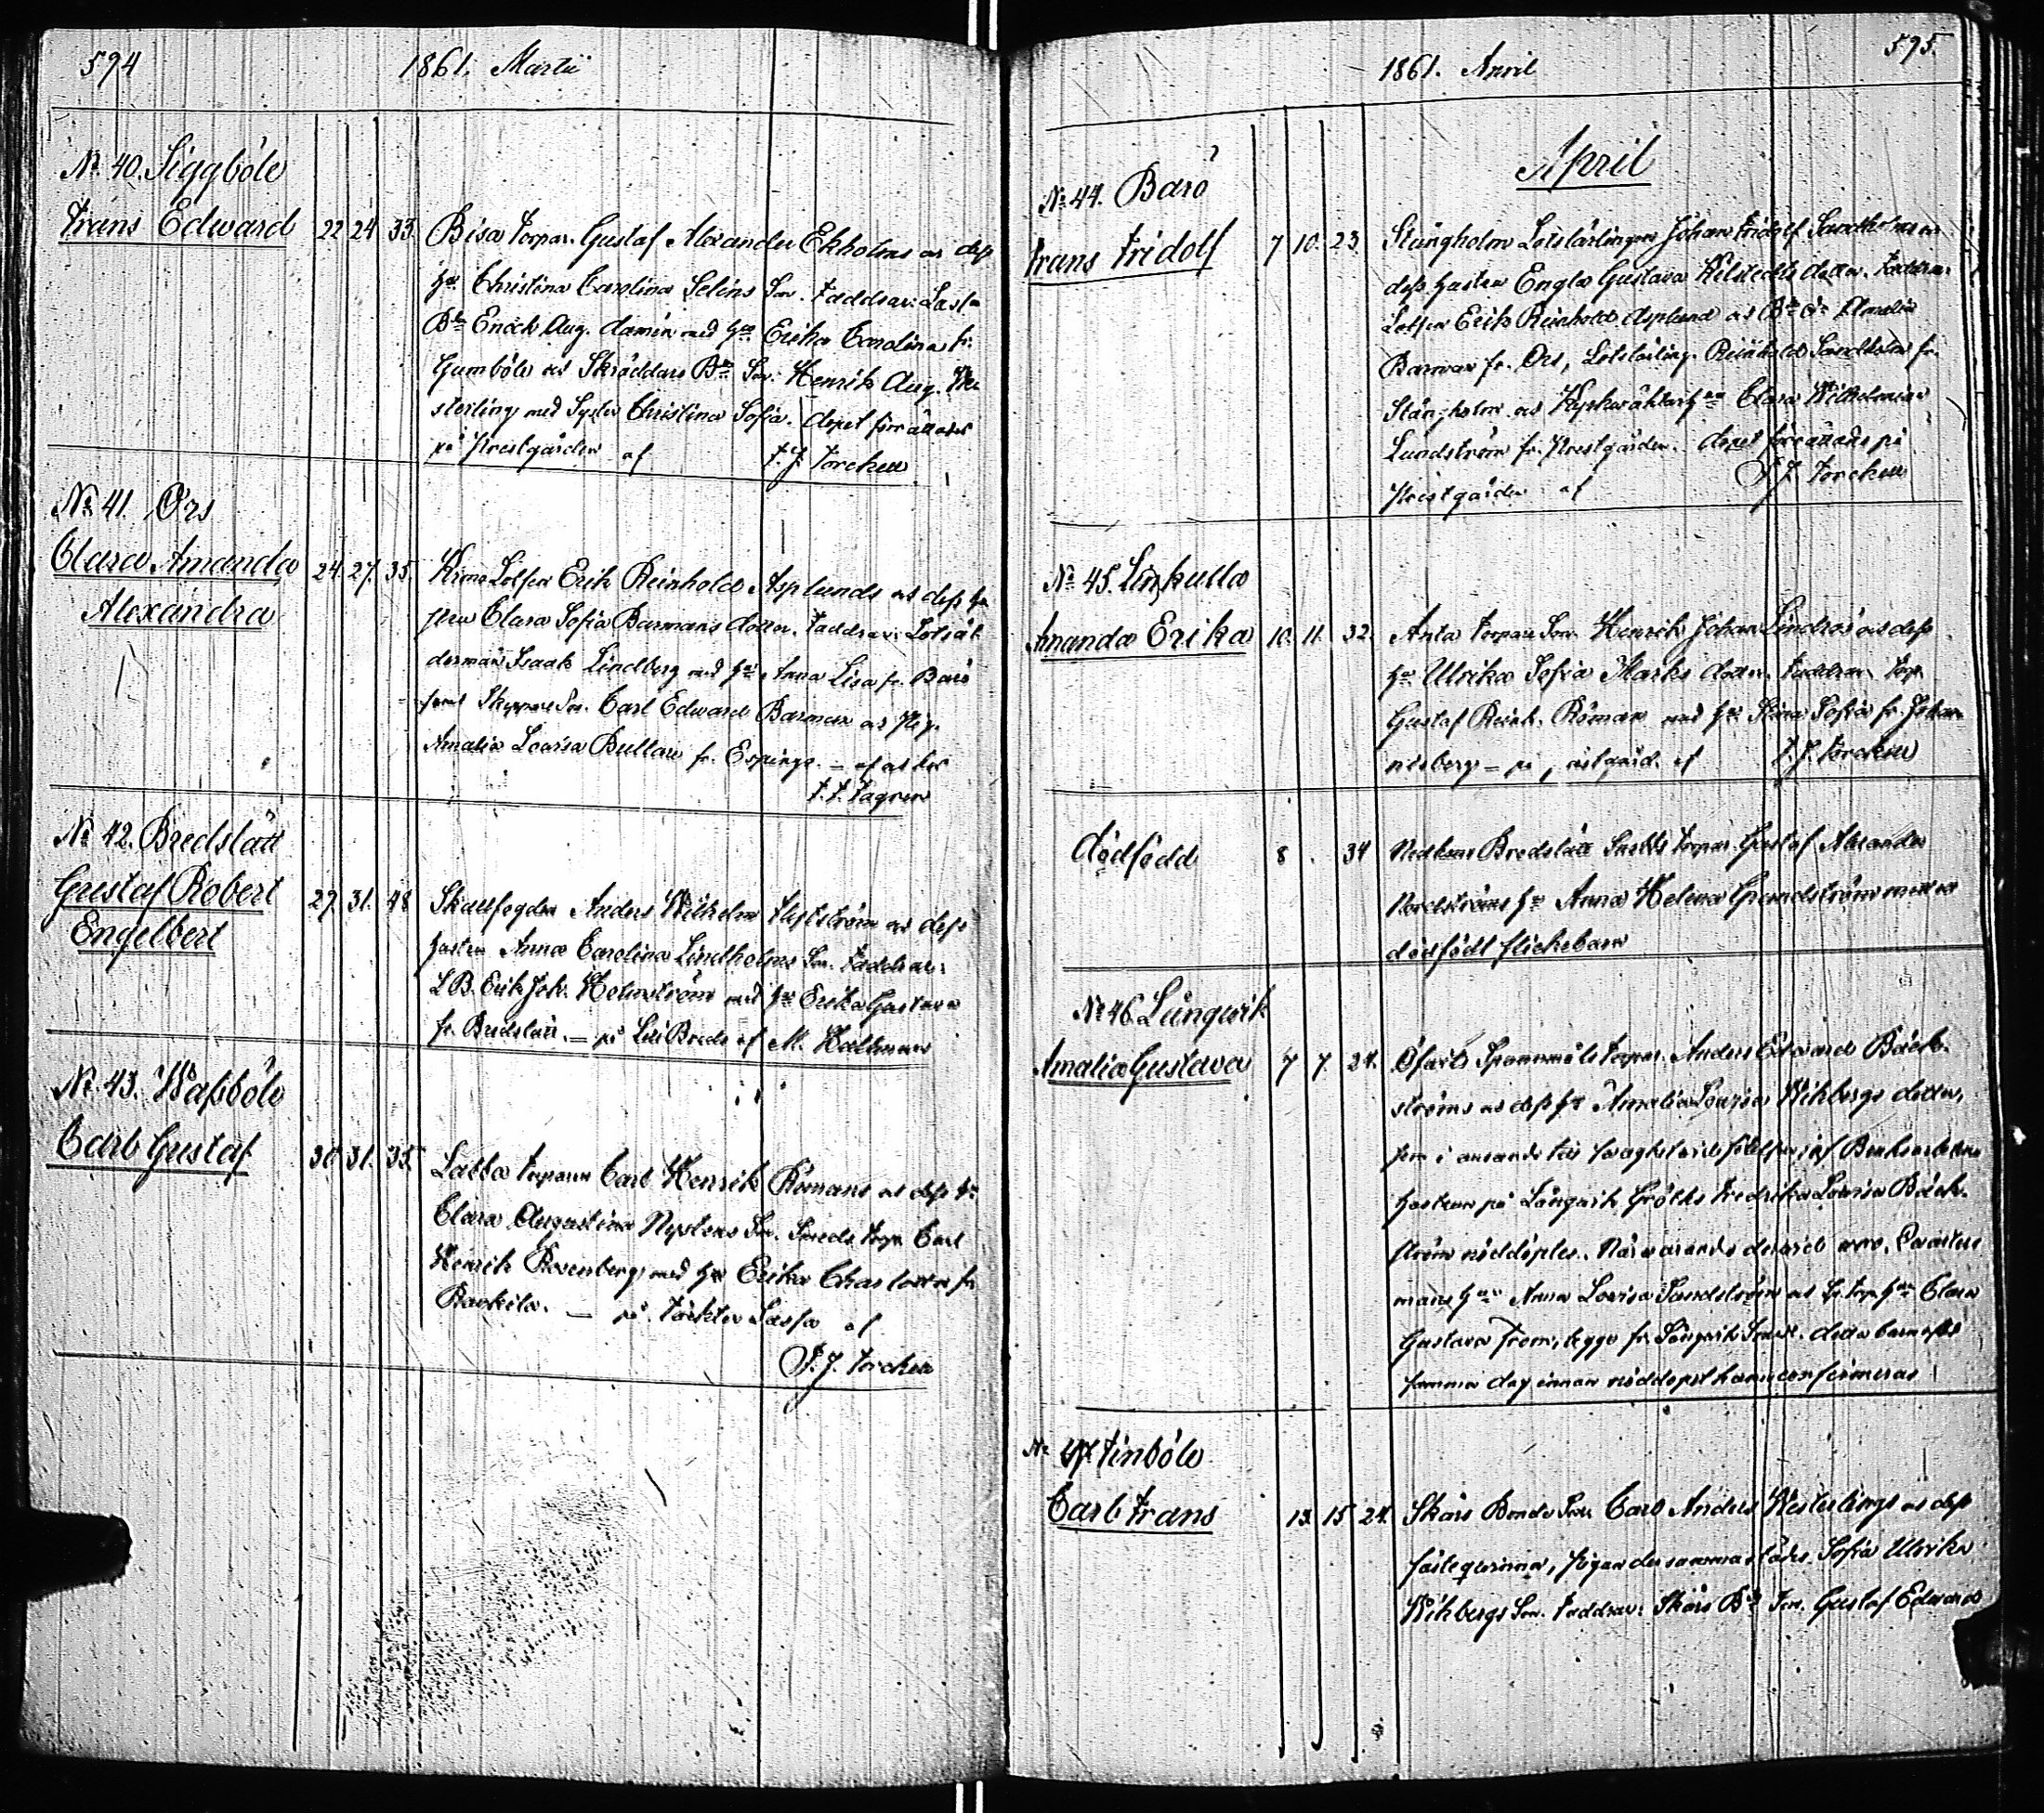 594
1861. Martii
No 40. Siggböle
Frans Edward 22 24 33. Bisa Torpar. Gustaf Alexander Ekholms as dess
Christina Carolina Selins Son. Faddrar:
Enoch Aug. med Hu Erika Carolina fr.
Gumböle as Skräddare Bde Son. Henrik Aug. We
sterling med Syster Christina Sofia. Dopet förrättades
på Prestgården af F. J. Forchen
No 41. Örs
Clara Amanda 24. 27. 35. Lotsen Erik Reinhold Asplunds as dess Hu
Alexandra
strus Clara Sofia Barmans dotter. Faddrar: Lotsål
derman Isaak Lindberg med Hu Anna Lisa fr. Barö
samt Skeppare Son. Carl Edward Barman as Pig.
Amalia Lovisa Bullar fr. Espinge. — af
F. F. Fagren
No 42. Bredslätt
Gustaf Robert 29. 31. 48 Anders Wilhelm as dess
Engelbert
Hustru Anna Carolina Lindholms Son. Faddrar:
L B. Erik Joh. Holmström med Hu Erika Gustava
fr. Bredslätt. — på af M. Hallman
No 43. Wassböle
Carl Gustaf 30. 31. 35. Labba Torparen Carl Henrik Römans as dess Hu
Clara Augustina Nystens Son. Torp. Carl
Henrik Rosenberg med Hu Erika Charlotta fr.
— på Lassa af
F. J. Forchen
595.
1861. April
April
No 44. Barö
Frans Fridolf 7 10. 23. Stångholm Lotslärlingen Johan Fridolf as
dess Hustru Engla Gustava dotter. Faddrar:
Lotsen Erik Reinhold Asplund as Amalia
Barman fr. Örs, Lotslärling. Reinhold Sandholm fr.
Stångholm as Clara Wilhelmina
Lundström fr. Prestgården. Dopet förrättades på
Prestgården af F. J. Forchen
No 45. Linkulla
Amanda Erika 10. 11. 32. Anta Torpare Son Henrik Johan Lindros as dess
Hu Ulrika Sofia Marks dotter. Faddrar. Torp.
Gustaf Reinh. Röman med Hu Stina Sofia fr. Johan
nesberg — på af F. J. Forchen
Dödfödd 8 . 34 Bredslätt Torpar. Gustaf Alexander
Nordströms Hu Anna Helena Grundström
dödfödt flickebarn
No 46. Långwik
Amalia Gustava 7 7. 24. Öfverby Torpar. Anders Edward Bäck-
ströms as dess Hu Amalia Lovisa Wikbergs dotter,
som i anseende till swaghet wid födelsen af
hustrun på Långwik Fredrika Lovisa Bäck-
ström nöddöptes. Närwarande derwid woro,
mans Hu Anna Lovisa Sandström as Torp. Hu Clara
Gustava From, begge fr. Långwik. Detta barn afled
samma dag innan nöddopet hann confirmeras
No 47. Finböle
Carl Frans 13. 15. 24. Skärs Bonde Son Carl Anders Westerlings as dess
fästeqwinna, Pigan dersammastädes Sofia Ulrika
Wikbergs Son. Faddrar: Skärs Bde Son. Gustaf Edward